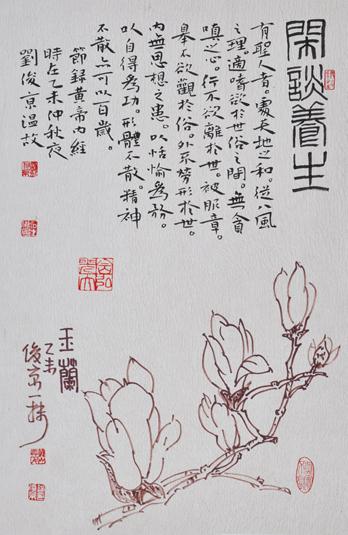 閑談養生
有聖人者。處天地之和。從八風
之理。適嗜欲於世俗之間。無貪
嗔之心。行不欲離於世。被服章。
舉不欲觀於俗。外不勞形於世。
内無思想之患。以恬愉為務。
以自得為功。形體不散。精神
不散。亦可以百歲。
節録黄帝内經
時在乙未仲秋夜
劉俊京温故
玉蘭
乙未
俊京一